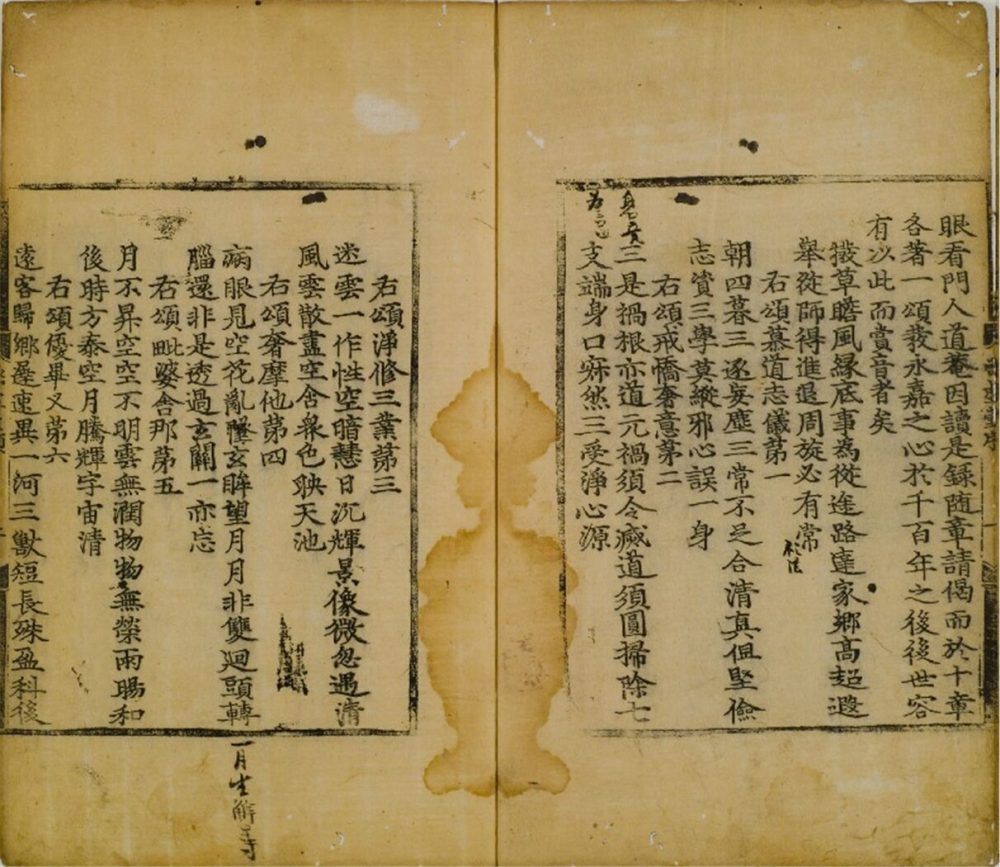 眼看門人道菴因讀是録随章請偈而於十章
各著一頌發永嘉之心於千百年之後後世容
有以此而賞音者矣
撥草瞻風緣底事為從迷路達家鄉高超遐
舉從師得進退周旋必有常
右頌慕道志儀苐一
朝四暮三逐妄塵三常不足合清真但堅儉
志資三學莫縱邪心誤一身
右頌戒憍奢意苐二
三是禍根亦道元禍須令滅道須圓掃除七
支端身口寂然三受淨心源
右頌淨修三業苐三
迷雲一作性空暗慧日沉輝景像微忽遇清
風雲散盡空含衆色映天池
右頌奢摩他苐四
病眼見空花亂墜玄眸望月月非雙迴頭轉
腦還非是透過玄關一亦忘
右頌毗婆舍那苐五
月不昇空空不明雲無潤物物無榮雨暘和
後時方泰空月騰輝宇宙清
右頌優畢叉苐六
遠客歸鄉遲速異一河三獸短長殊盈科後